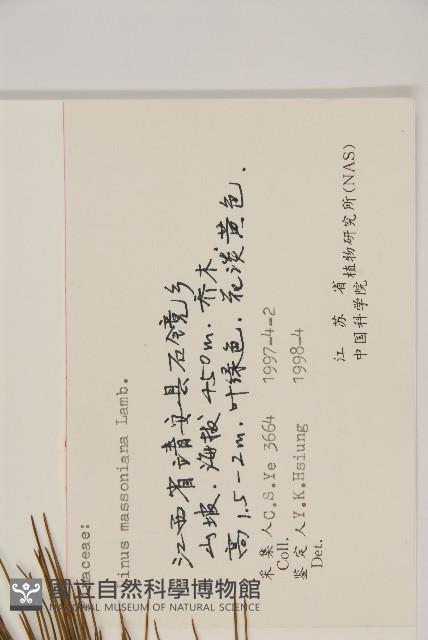 aceae:
inus massoniana Lamb.
江西省靖安县石镜乡
山坡.海拔 450m.乔木,
高1.5-2m.叶绿色.花淡黄色.
采集人 C.S.Ye 3664 1997-4-2
Coll.
鉴定人 Y.K.Hsiung 1998-4
Det.
江苏省植物研究所(NAS)
中国科学院
國立自然科學博物館
NATIONAL MUSEUM OF NATURAL SCIENCE